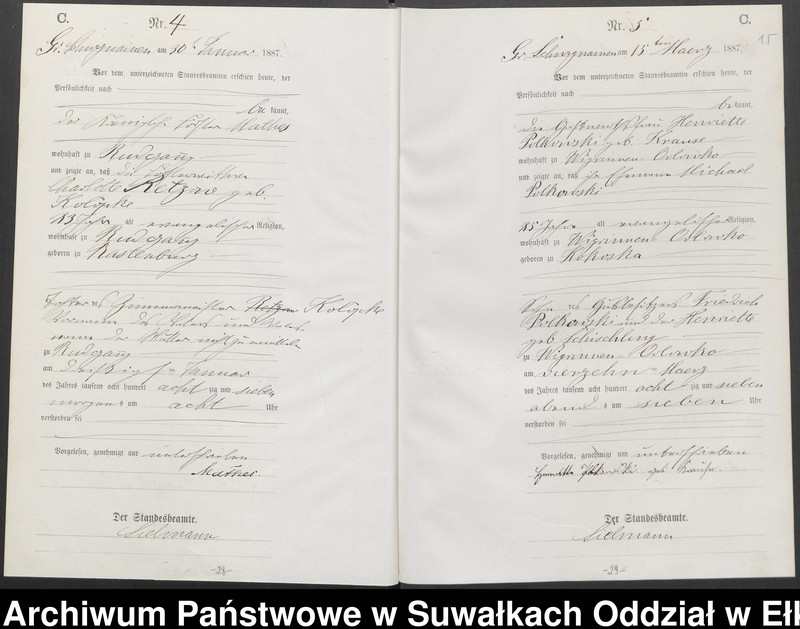 C.
Nr. 4
Gr. Schwignainen am 30t Januar 1887.
Vor dem unterzeichneten Standesbeamten erschien heute, der
Persönlichkeit nach
be kannt,
der Königliche Förster Mathes
wohnhaft zu Rudczanny
und zeigte an, daß die
Charlotte Retzow geb.
Kolipke
83 Jahr alt evangelischer Religion,
wohnhaft zu Rudczanny
geboren zu Rastenburg
Tochter des Zimmermeister Kolipke
Vornamen des Vaters und
der Mutter nicht zu ermitteln
zu Rudczanny
am Januar
des Jahres tausend acht hundert acht zig und sieben
morgens um acht Uhr
verstorben sei
Vorgelesen, genehmigt und unterschrieben
Mathes.
Der Standesbeamte.
Sielmann
-28-
C.
Nr. 5
15
Gr. Schwignainen am 15 ten Maerz 1887.
Vor dem unterzeichneten Standesbeamten erschien heute, der
Persönlichkeit nach
bekannt,
die Henriette
Polkowski geb. Krause
wohnhaft zu Wigrinnen Orlowko
und zeigte an, daß ihr Ehemann Michael
Polkowski
85 Jahre alt evangelischer Religion,
wohnhaft zu Wigrinnen Orlowko
geboren zu Kokoska
Sohn des Gutsbesitzers Friedrich
Polkowski und der Henriette
geb Schischling
zu Wigrinnen Orlowko
am vierzehn Maerz
des Jahres tausend acht hundert acht zig und sieben
abend s um sieben Uhr
verstorben sei
Vorgelesen, genehmigt und unterschrieben
Henriette Polkowski geb Krause.
Der Standesbeamte.
Sielmann
-29-
Archiwum Państwowe w Suwałkach Oddział w Ełk